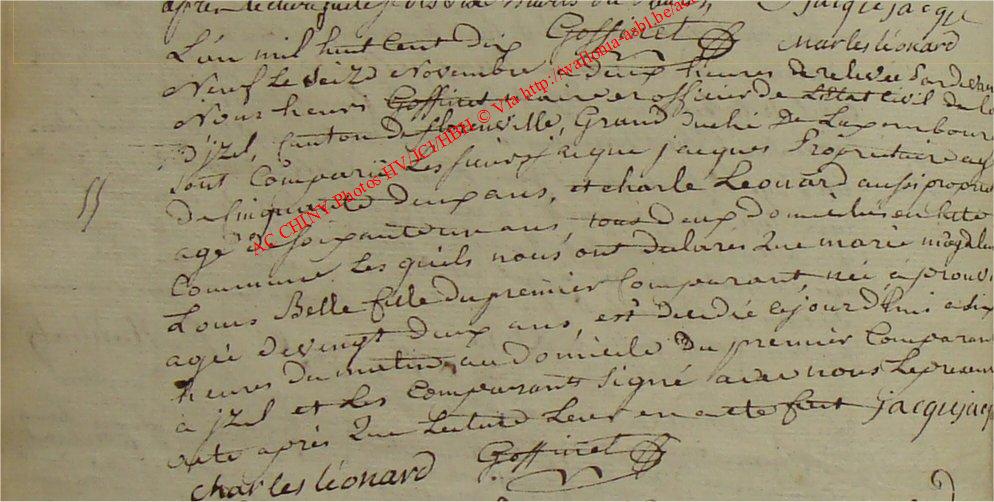 après lecture
Jacque jacque
L'an mil huit cent dix Goffinet Charles léonard
Neuf le 22d Novembre a deux heures de relevée Pardevant
Nous henri Goffinet maire et officier de L'état Civil de la
d'jzel, Canton de florenville, Grand duché de Luxembourg
sont Comparus Les sieurs jacque jacques Propriétaire agé
55
de cinquante deux ans, et charle Leonard aussi propri
agé de soixante un ans, tous deux domicilies en lade
Commune Les quels nous ont déclarés Que marie magdel
Louis Belle fille du premier Comparant, née, a prouvi
agée de vingt deux ans, est décédée ce jourd'hui a dix
heures du matin, au domicile du premier Comparan
a jzel et Les Comparants Signé avec nous Le presen
acte après Que Lecture Leur en a été fait jacque jacq
charles léonard Goffinet
AC CHINY Photos HV/JCJ/HBH © Via http://wallonia-asbl.be/ac